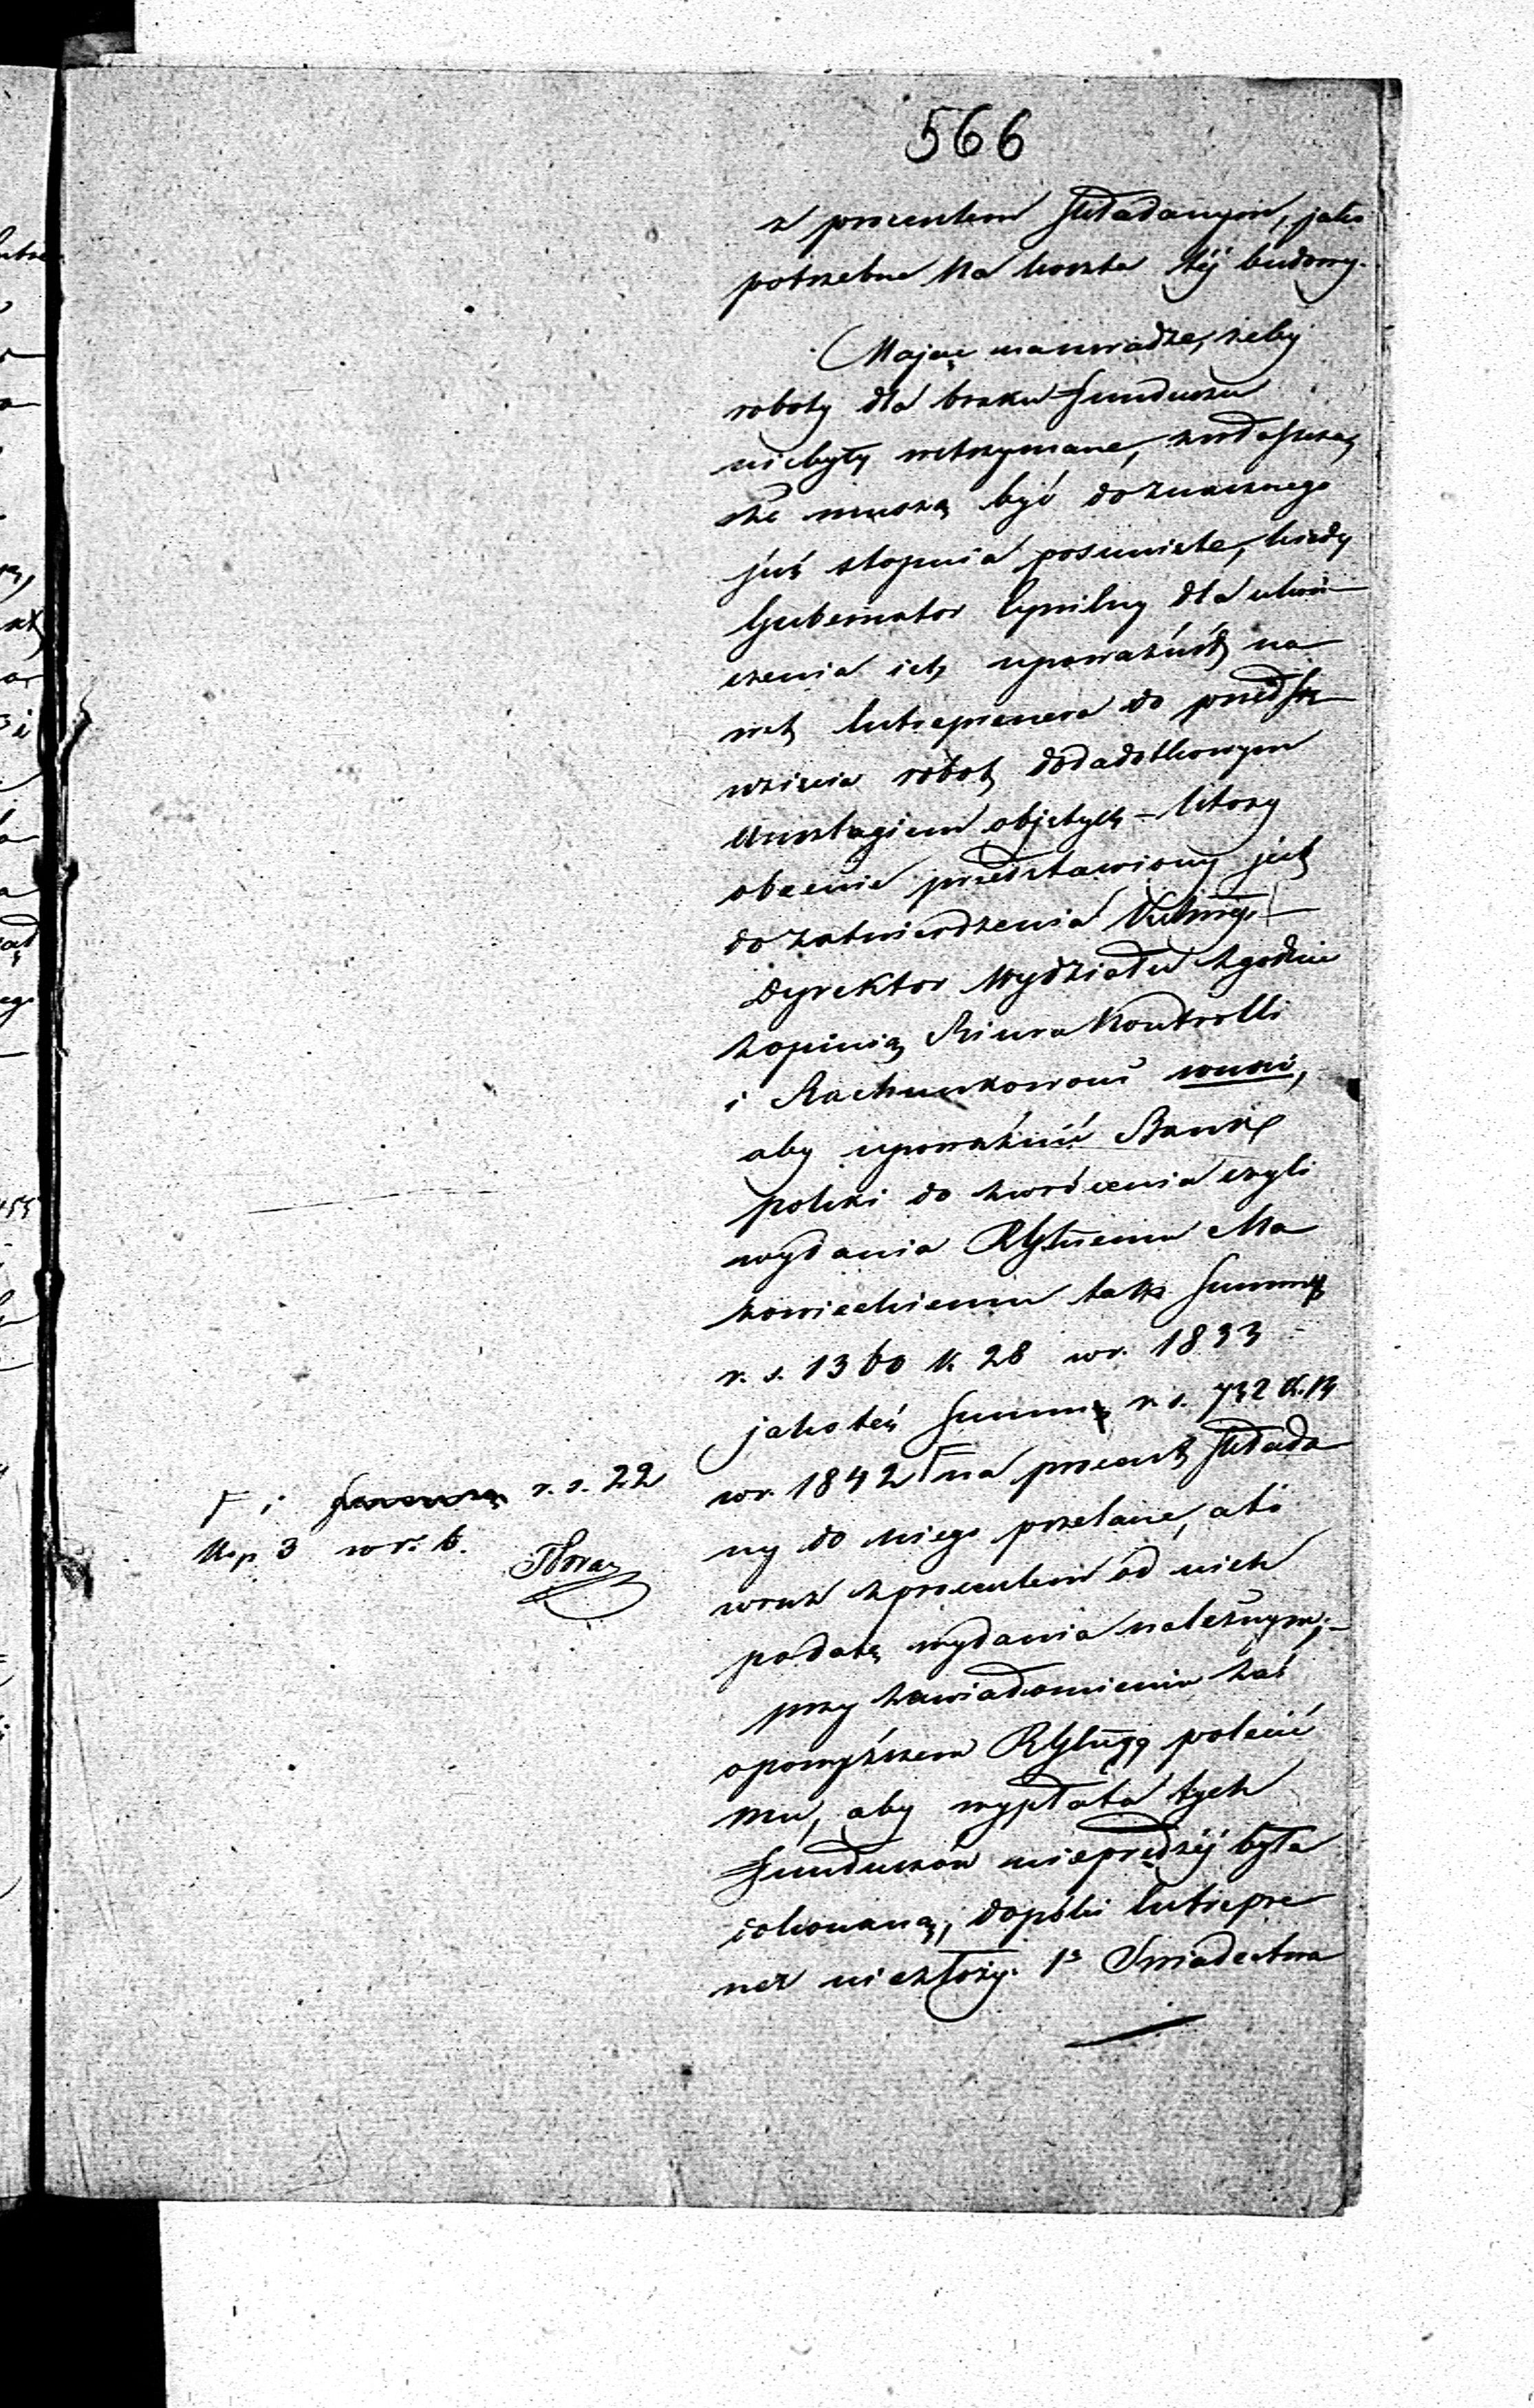 566
z procentem składanym, jako
potrzebne na koszta téj budowy.
Mając na uwadze, żeby
roboty dla braku funduszu
niebyły wstrzymane, zwłaszcza,
że muszą być do znacznego
już stopnia posunięte, kiedy
Gubernator Cywilny dla ukoń
czenia ich, upoważnił na
wet Entreprenera do przedsię
wzięcia robot dodadatkowym
Anszlagiem objętych – który
obecnie przedstawiony jest
do zatwierdzenia
Dyrektor Wydziału zgodnie
z opinią Biura Kontrolli
i Rachunkowości wnosi,
aby upoważnić Bank
polski do zwrócenia czyli
wydania Rządowi Gubernialnemu Ma
zowieckiemu tak summę
r. s. 1360 k 28 w r. 1833
jako też summę r. s. 732 k. 13
w r. 1842 Γ na procent składa
ny do niego przelane, a to
wraz z procentem od nich
po datę wydania należnym;
przy zawiadomieniu zaś
o powyższem polecić
mu, aby wypłata tych
funduszów nieprędzéj była
dokonaną, dopóki Entrepre
ner niezłoży. 1º Świadectwa
Γ i summę r. s. 22
kop 3 w r. b.